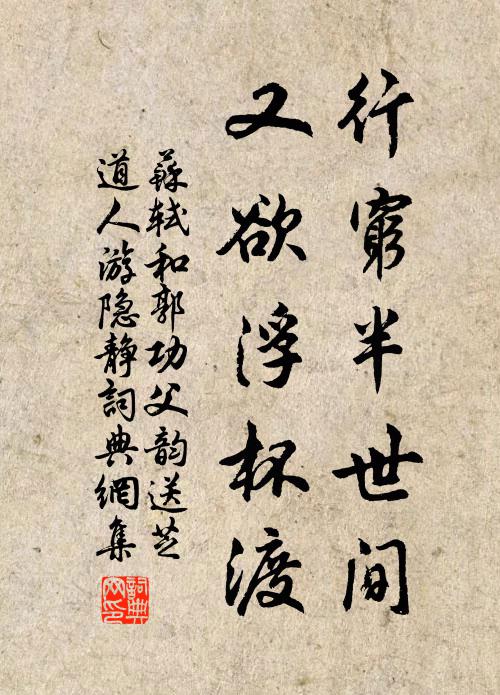 行窮半世間
又欲浮杯渡
蘇軾和郭功父韵送芝
道人游隐静詞典網集
詞典網印